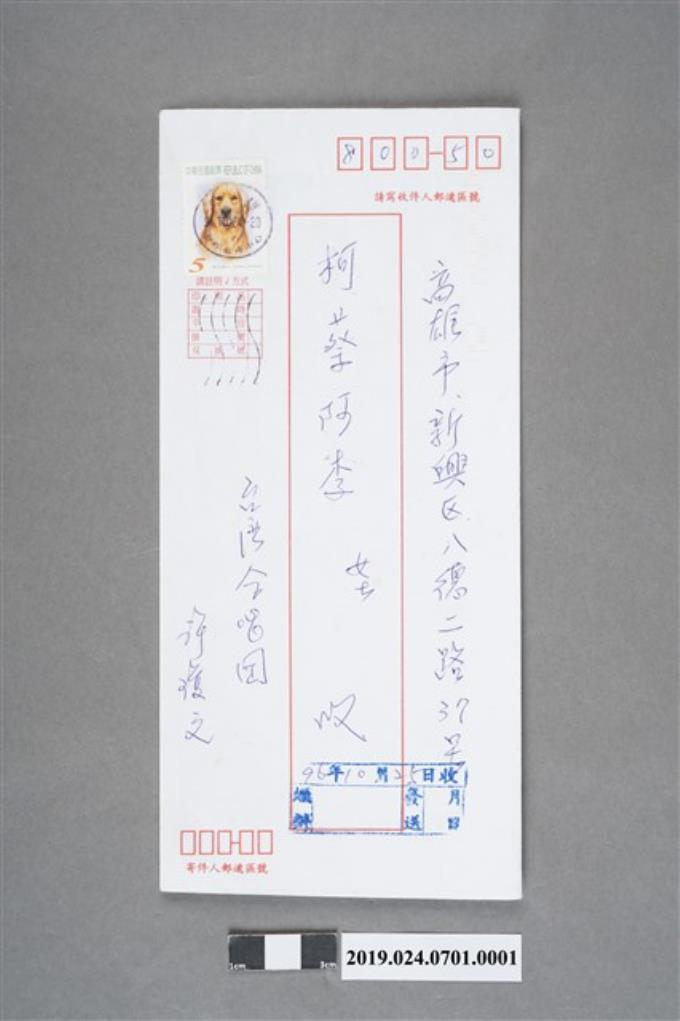 800-50
請寫收件人郵遞區號
高雄市新興区八德二路37号
柯蔡阿李 女士 收
台湾合唱団
許瓊文
中華民國郵票 REPUBLIC OF CHINA
5
請註明✓方式
96年10月25日收
發送
月日
寄件人郵遞區號
1cm
3cm
2019.024.0701.0001